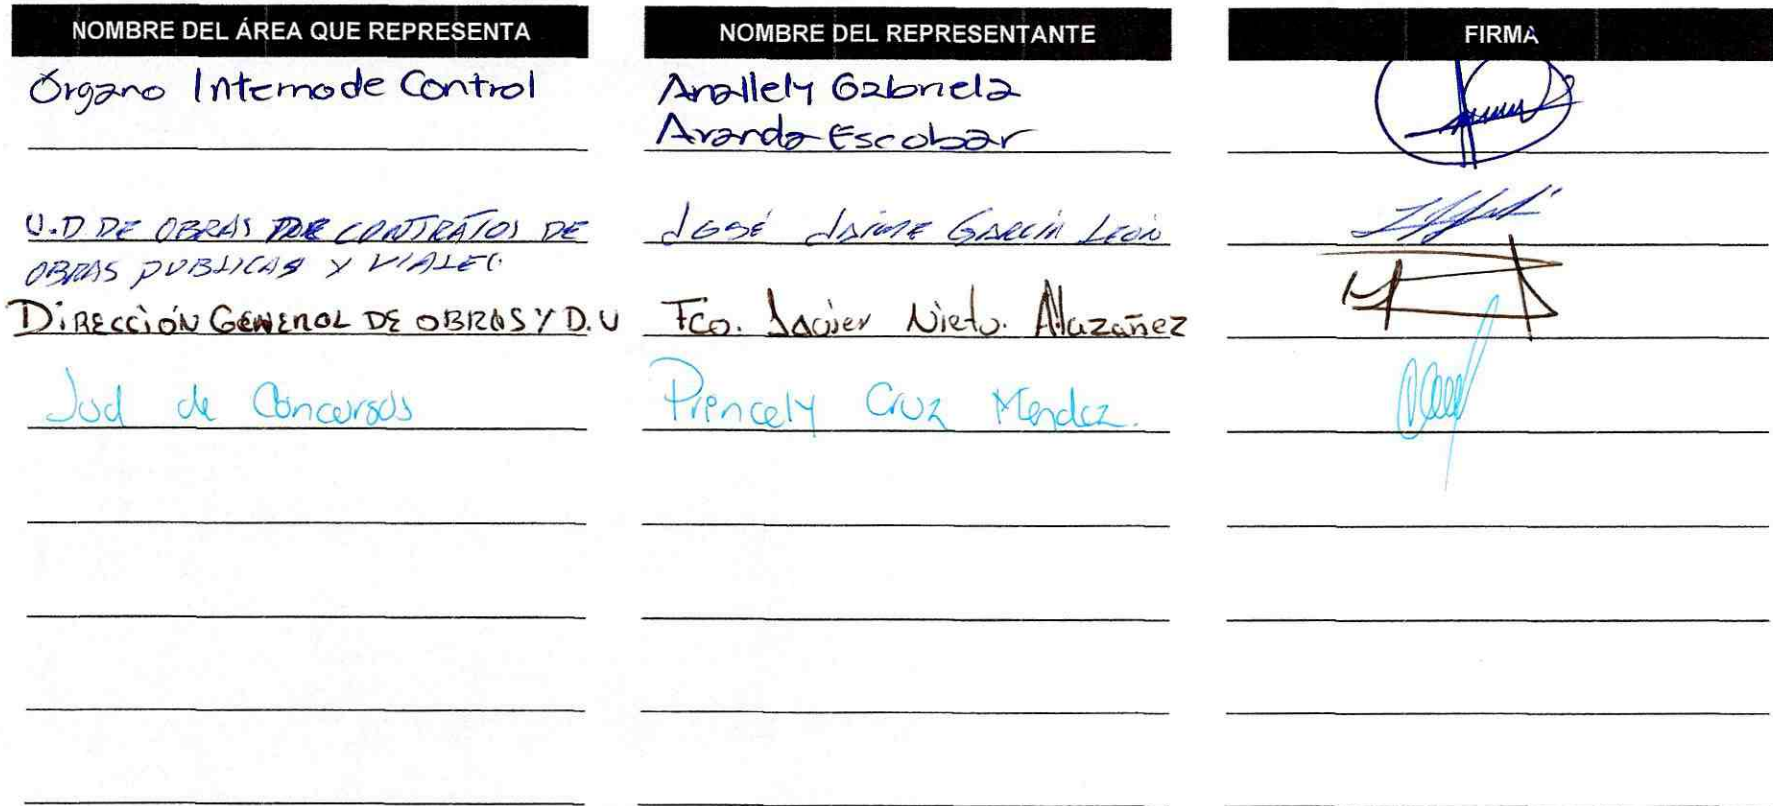 NOMBRE DEL ÁREA QUE REPRESENTA
NOMBRE DEL REPRESENTANTE
FIRMA
Órgano Interno de Control
Anallely Gabriela
Aranda Escobar
U.D DE OBRAS POR CONTRATOS DE
OBRAS PUBLICAS Y VIALES
José Jaime García León
DIRECCIÓN GENERAL DE OBRAS Y D.U
Fco. Javier Nieto.
Jud de Concursos
Prencely Cruz Mendez.